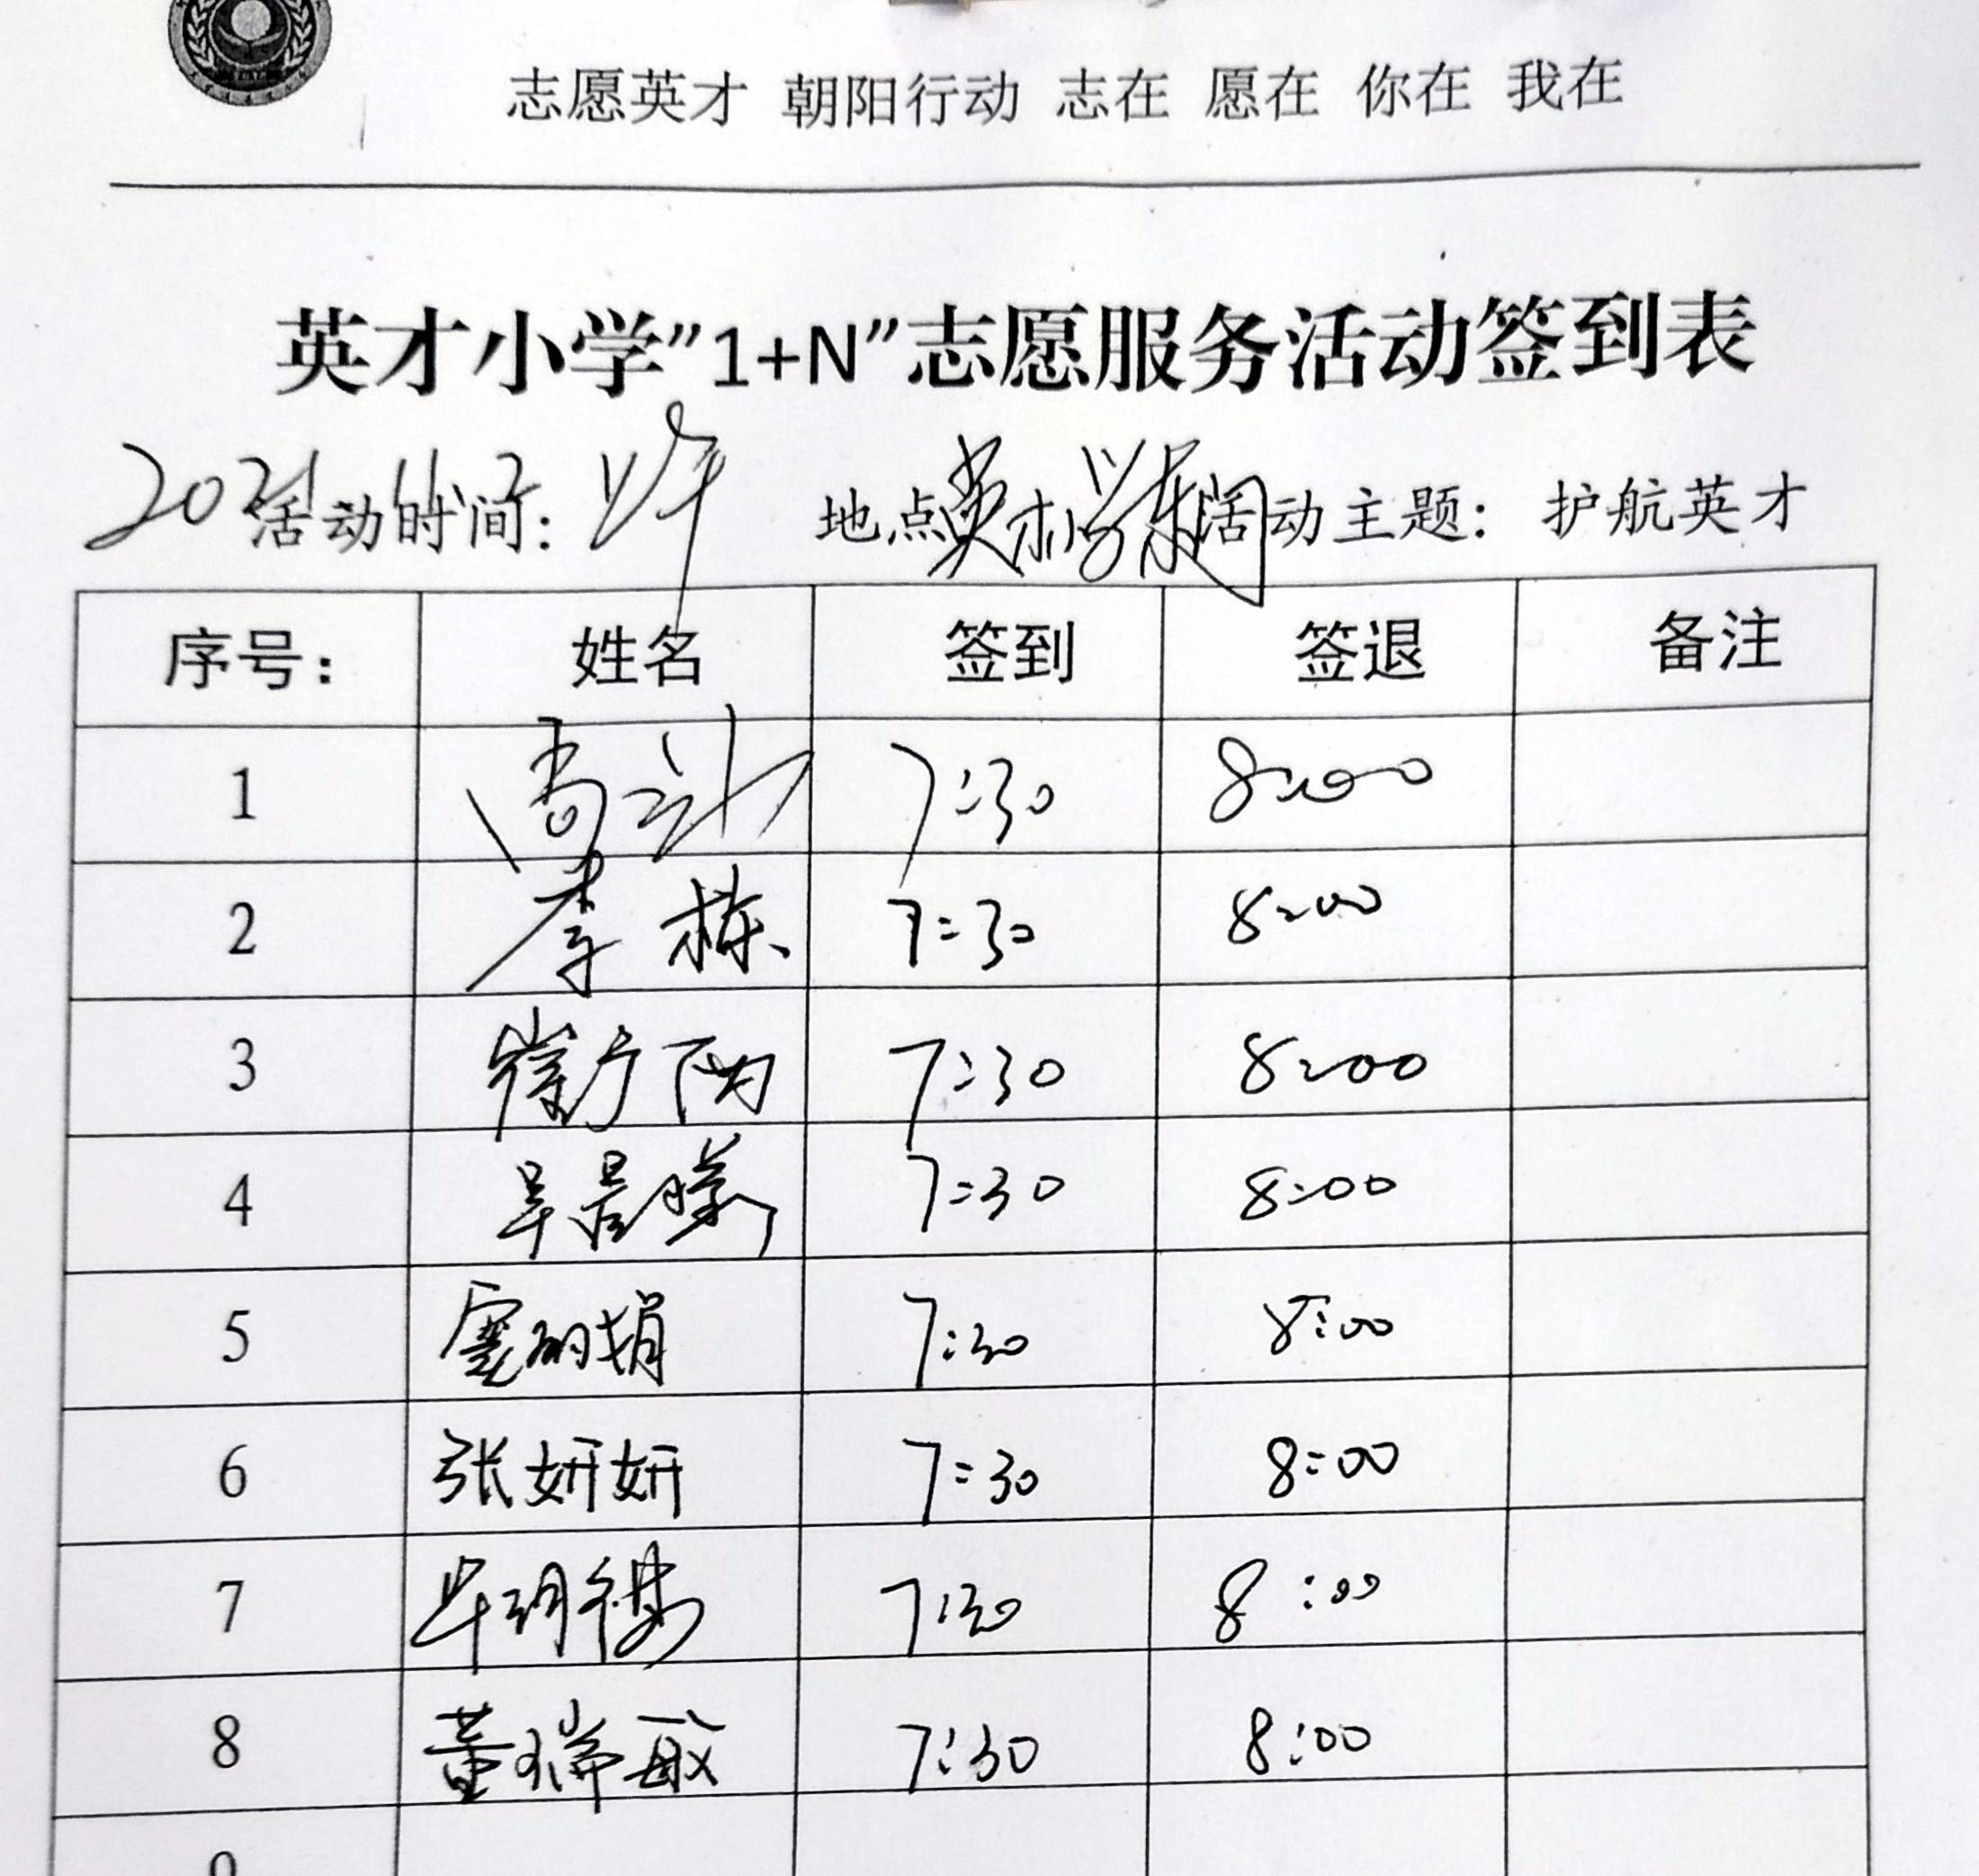 志愿英才 朝阳行动 志在 愿在 你在 我在
英才小学"1+N"志愿服务活动签到表
2021.11.2 活动时间: 上午 地点 英才小学东门 活动主题: 护航英才
序号: 姓名 签到 签退 备注
1 7:30 8:00
2 李栋 7:30 8:00
3 7:30 8:00
4 7:30 8:00
5 7:30 8:00
6 张妍妍 7:30 8:00
7 7:30 8:00
8 董瑞敏 7:30 8:00
9